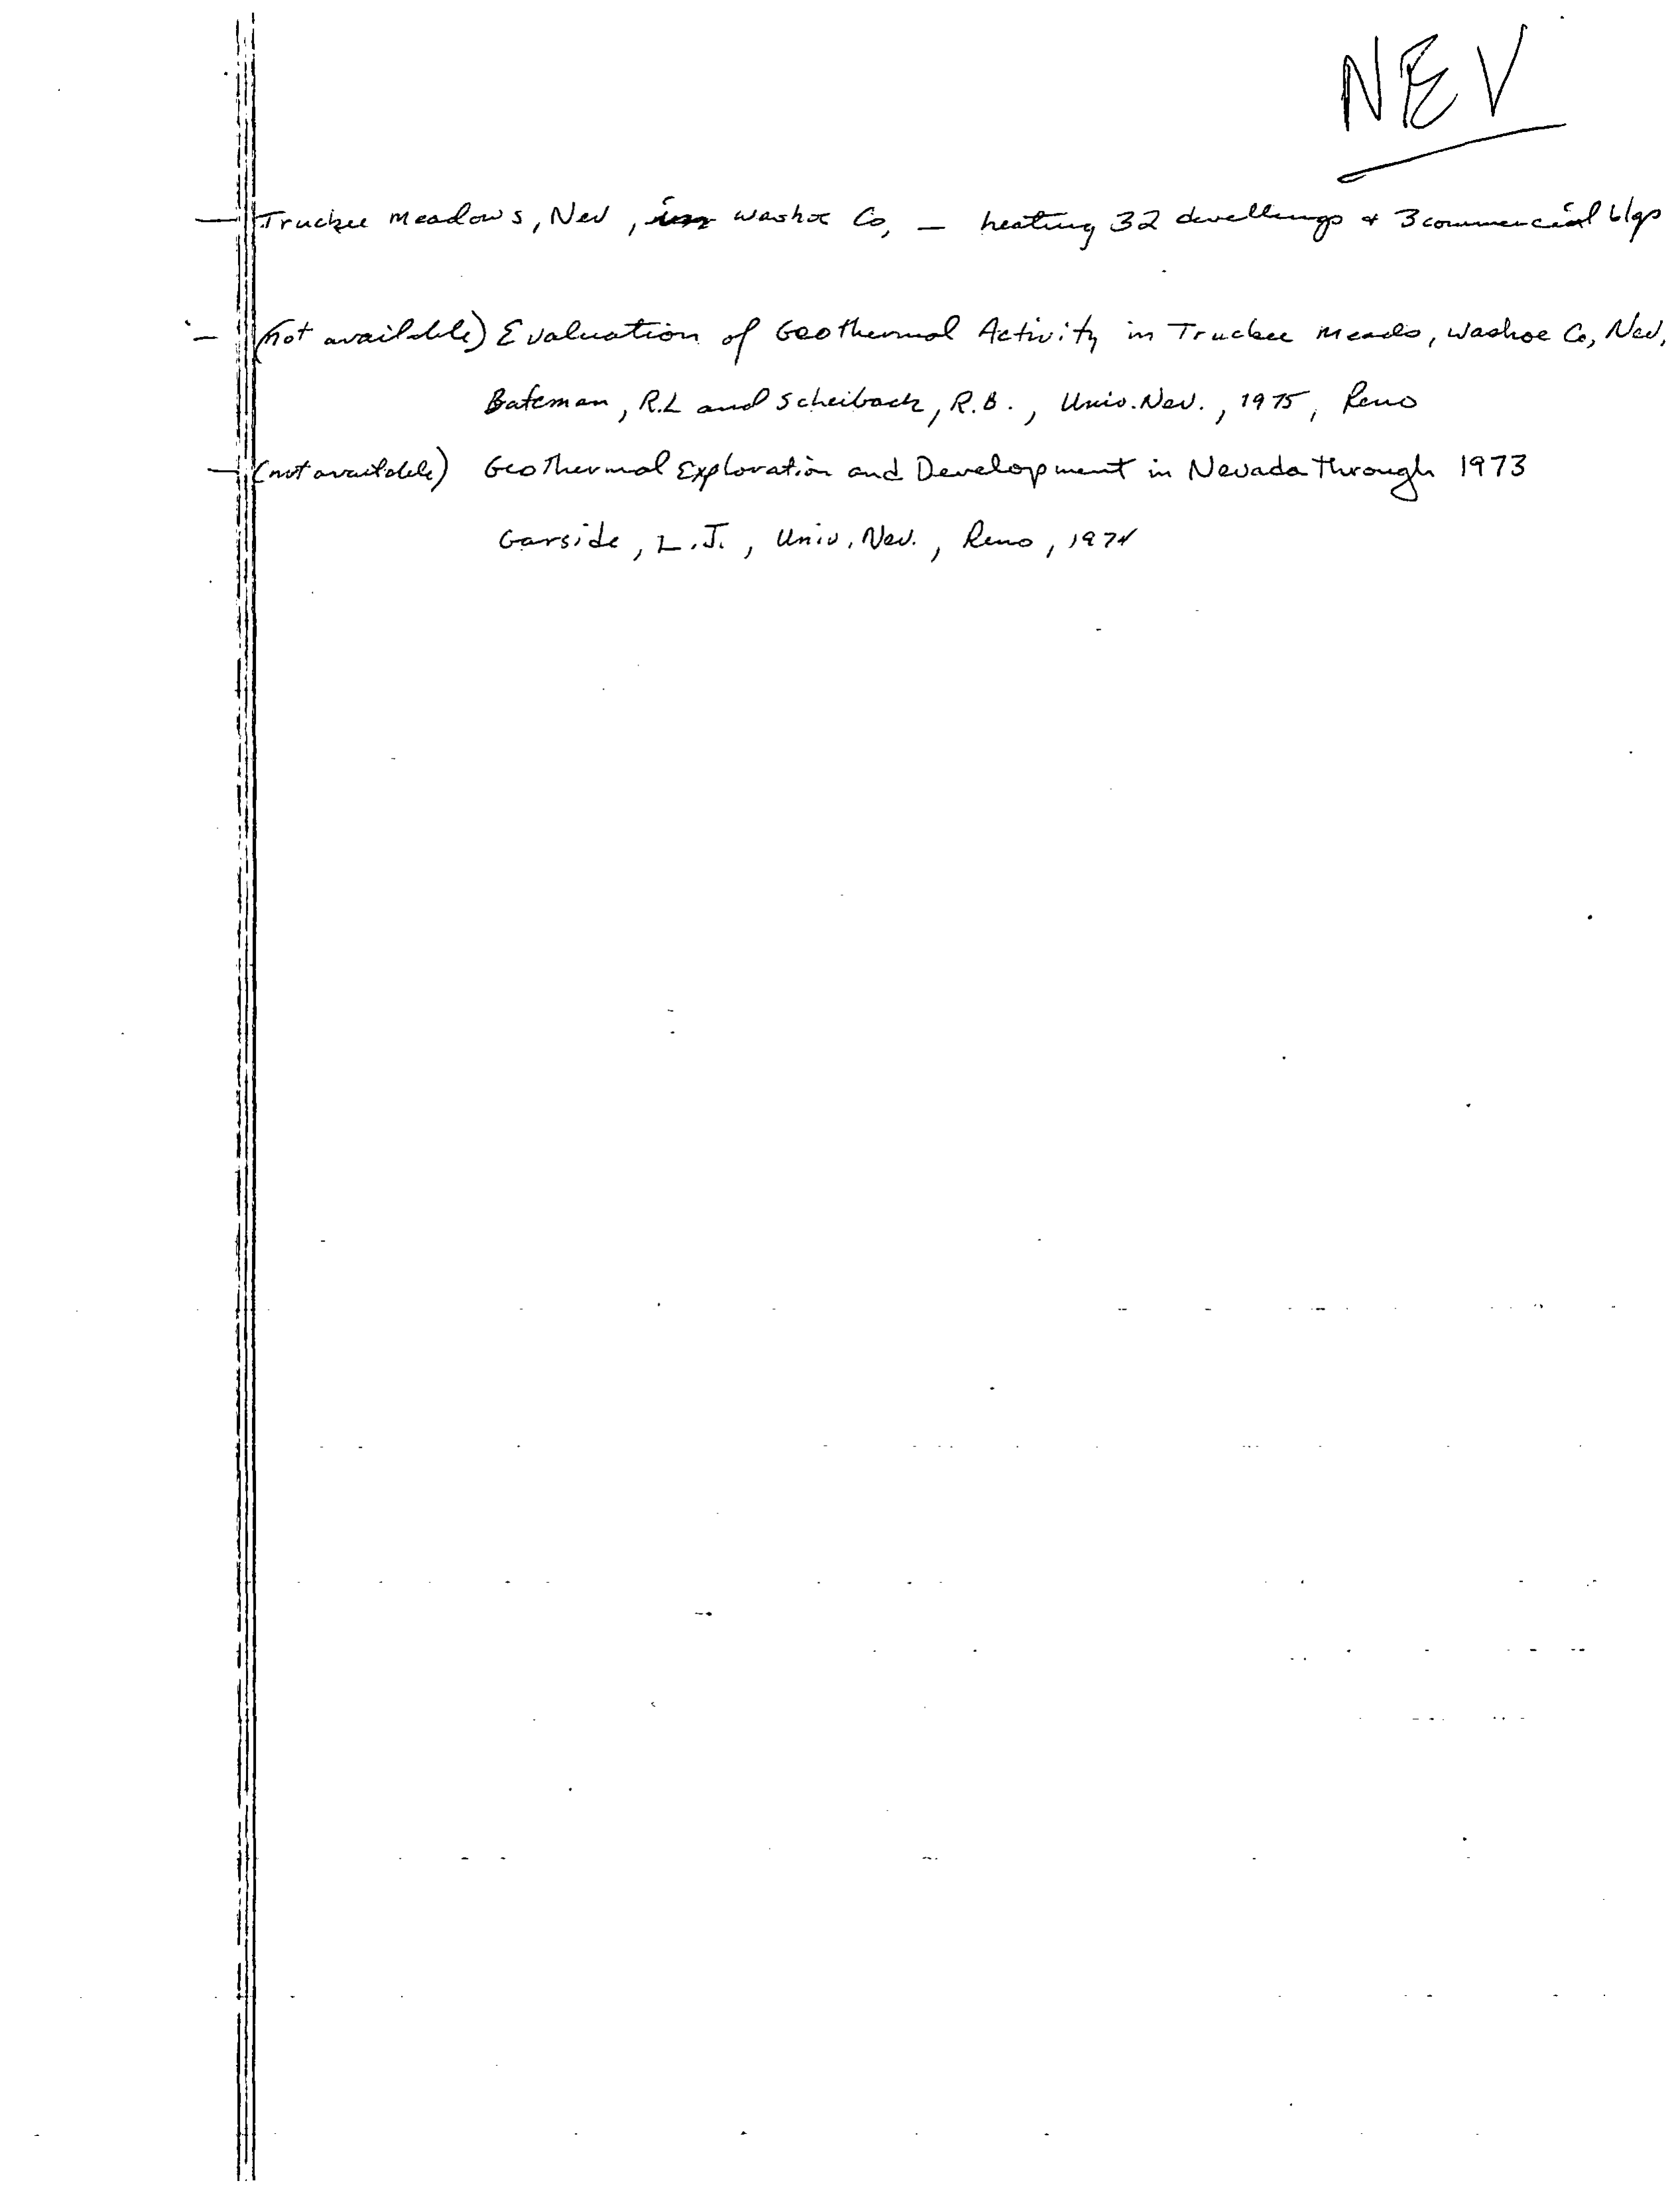 NEV
— Truckee Meadows, Nev, in Washoe Co, — heating 32 dwellings + 3 commercial blgs
— (not available) Evaluation of Geothermal Activity in Truckee Meado, Washoe Co, Nev,
Bateman, R.L and Scheibach, R.B., Univ. Nev., 1975, Reno
— (not available) Geothermal Exploration and Development in Nevada Through 1973
Garside, L.J., Univ. Nev., Reno, 1974